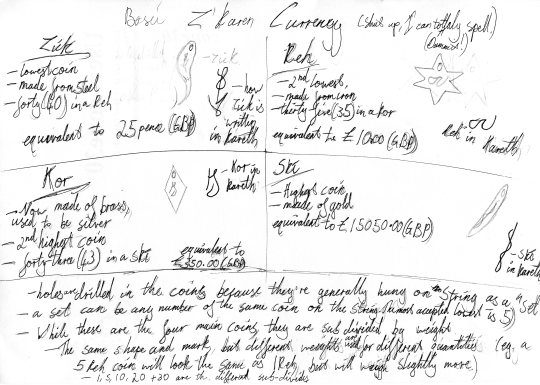 Basic Z'Karen Currency (shut up, I can totally spell)
(Dammit!)
Zük
- lowest coin
- made from steel
- forty (40) in a Reh
equivalent to 25 pence (GBP)
- how
Zük is
written
in Kareth
Reh
- 2nd lowest,
- made from iron
- thirty five (35) in a Kor
equivalent to £10.00 (GBP)
Reh in Kareth
Kor
- Now made of brass,
used to be silver
- 2nd highest coin
- forty-three (43) in a Skt
equivalent to
£350.00 (GBP)
Kor in
Kareth
- Highest coin,
- made of gold
equivalent to £15050.00 (GBP)
in Kareth
- holes are drilled in the coins because they're generally hung on string as a set
- a set can be any number of the same coin on the string (lowest accepted is 5)
- While these are the four main coins they are sub divided by weight
- The same shape and mark, but different weights used for different quantities (eg, a
5 Reh coin will look the same as 1 Reh, but will weigh slightly more)
1, 5, 10, 20 + 30 are the different sub-divides